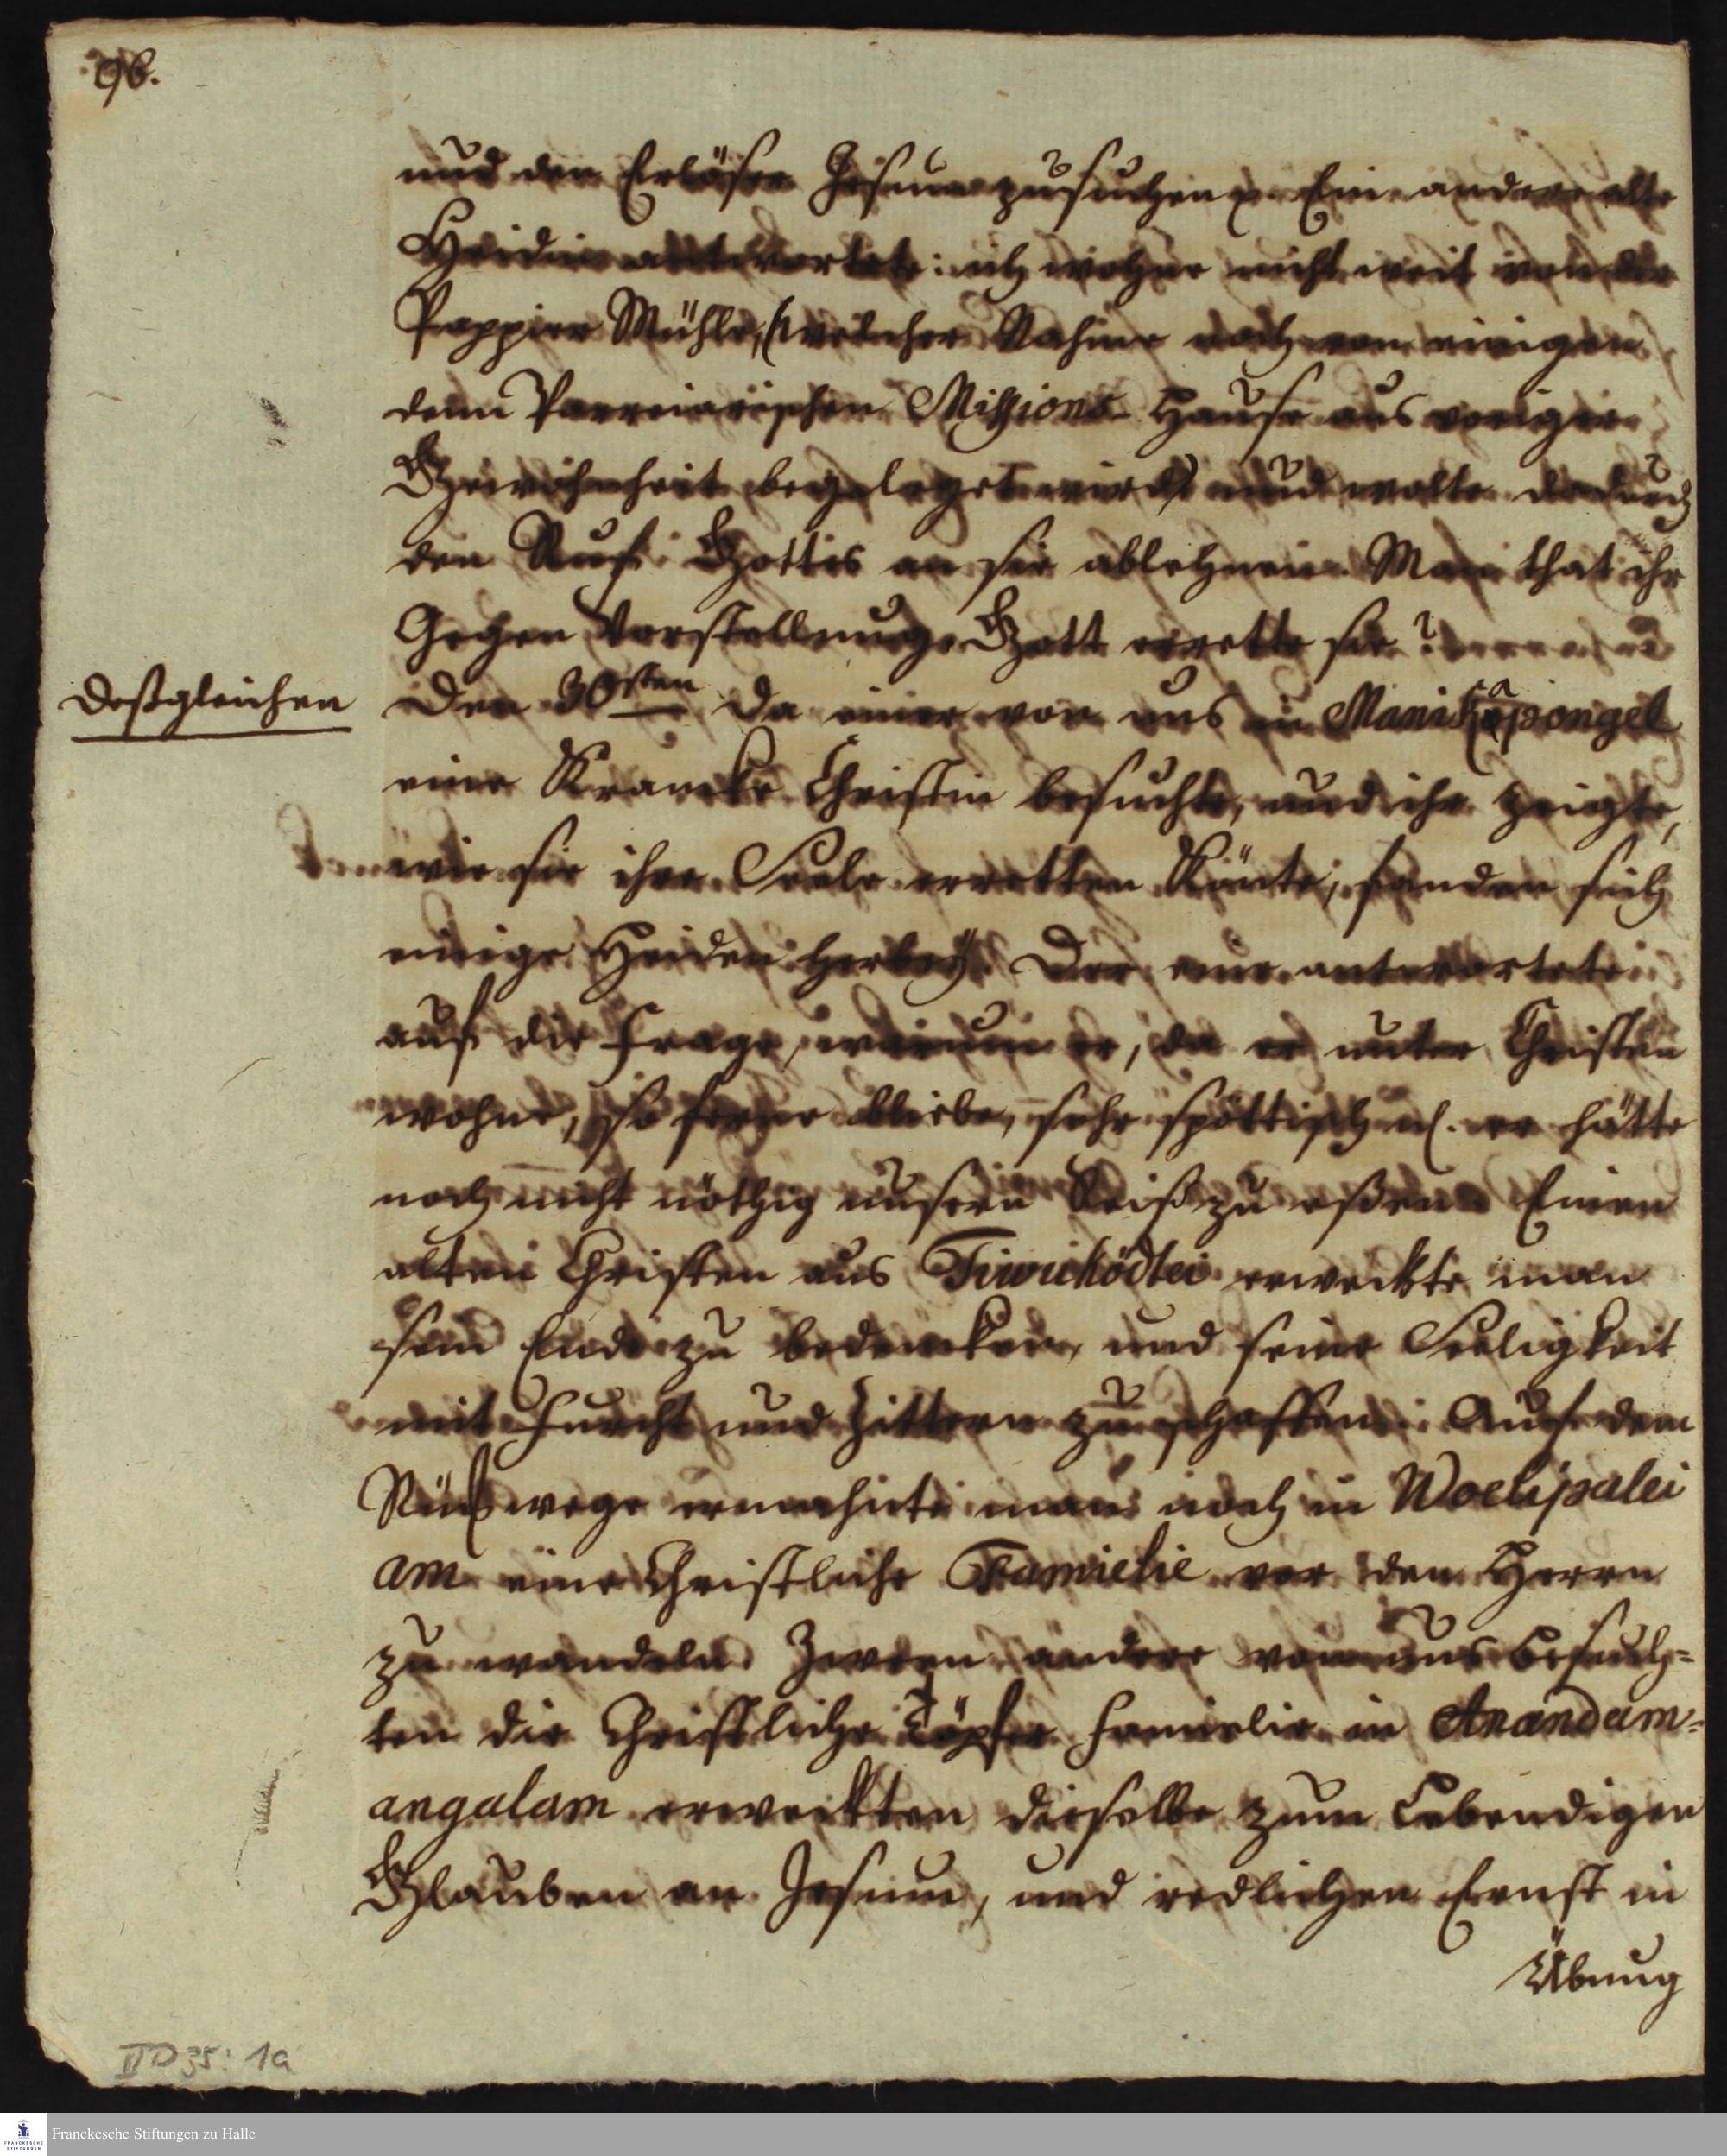 96.
und den Erlöser Jesum zu suchen p. Ein andere alte
Heidin antwortete: ich wohne nicht weit von der
Pappier Mühle, (welcher Nahme noch von einigen
dem Parreiarischen Missions-Hause aus voriger
Gewohnheit beygeleget wird) und wolte dadurch
den Ruf Gottes an sie ablehnen. Man that ihr
Gegen Vorstellung. Gott errette sie!
Deßgleichen
Den 30sten da einer von uns in Manikapongel
eine Krancke Christin besuchte, und ihr zeigte,
wie sie ihre Seele erretten könte, fanden sich
einige Heiden herbey. Der eine antwortete
auf die Frage, warum er, da er unter Christen
wohne, so ferne bliebe, sehr spöttisch er hätte
noch nicht nöthig unsern Reiß zu eßen. Einen
alten Christen aus Tirucködlei erweckte man
sein Ende zu bedencken, und seine Seeligkeit
mit Furcht und Zittern zu schaffen. Auf dem
Rückwege ermahnte man noch in Woelipalei
am eine Christliche Familie vor dem Herrn
zu wandeln. Zween andere von uns besuch=
ten die Christliche Töpfer Familie in Anandam=
angalam erweckten dieselbe zum Lebendigen
Glauben an Jesum, und redlichen Ernst in
Übung
II D 35: 1a
Franckesche Stiftungen zu Halle
FRANCKESCHE
STIFTUNGEN